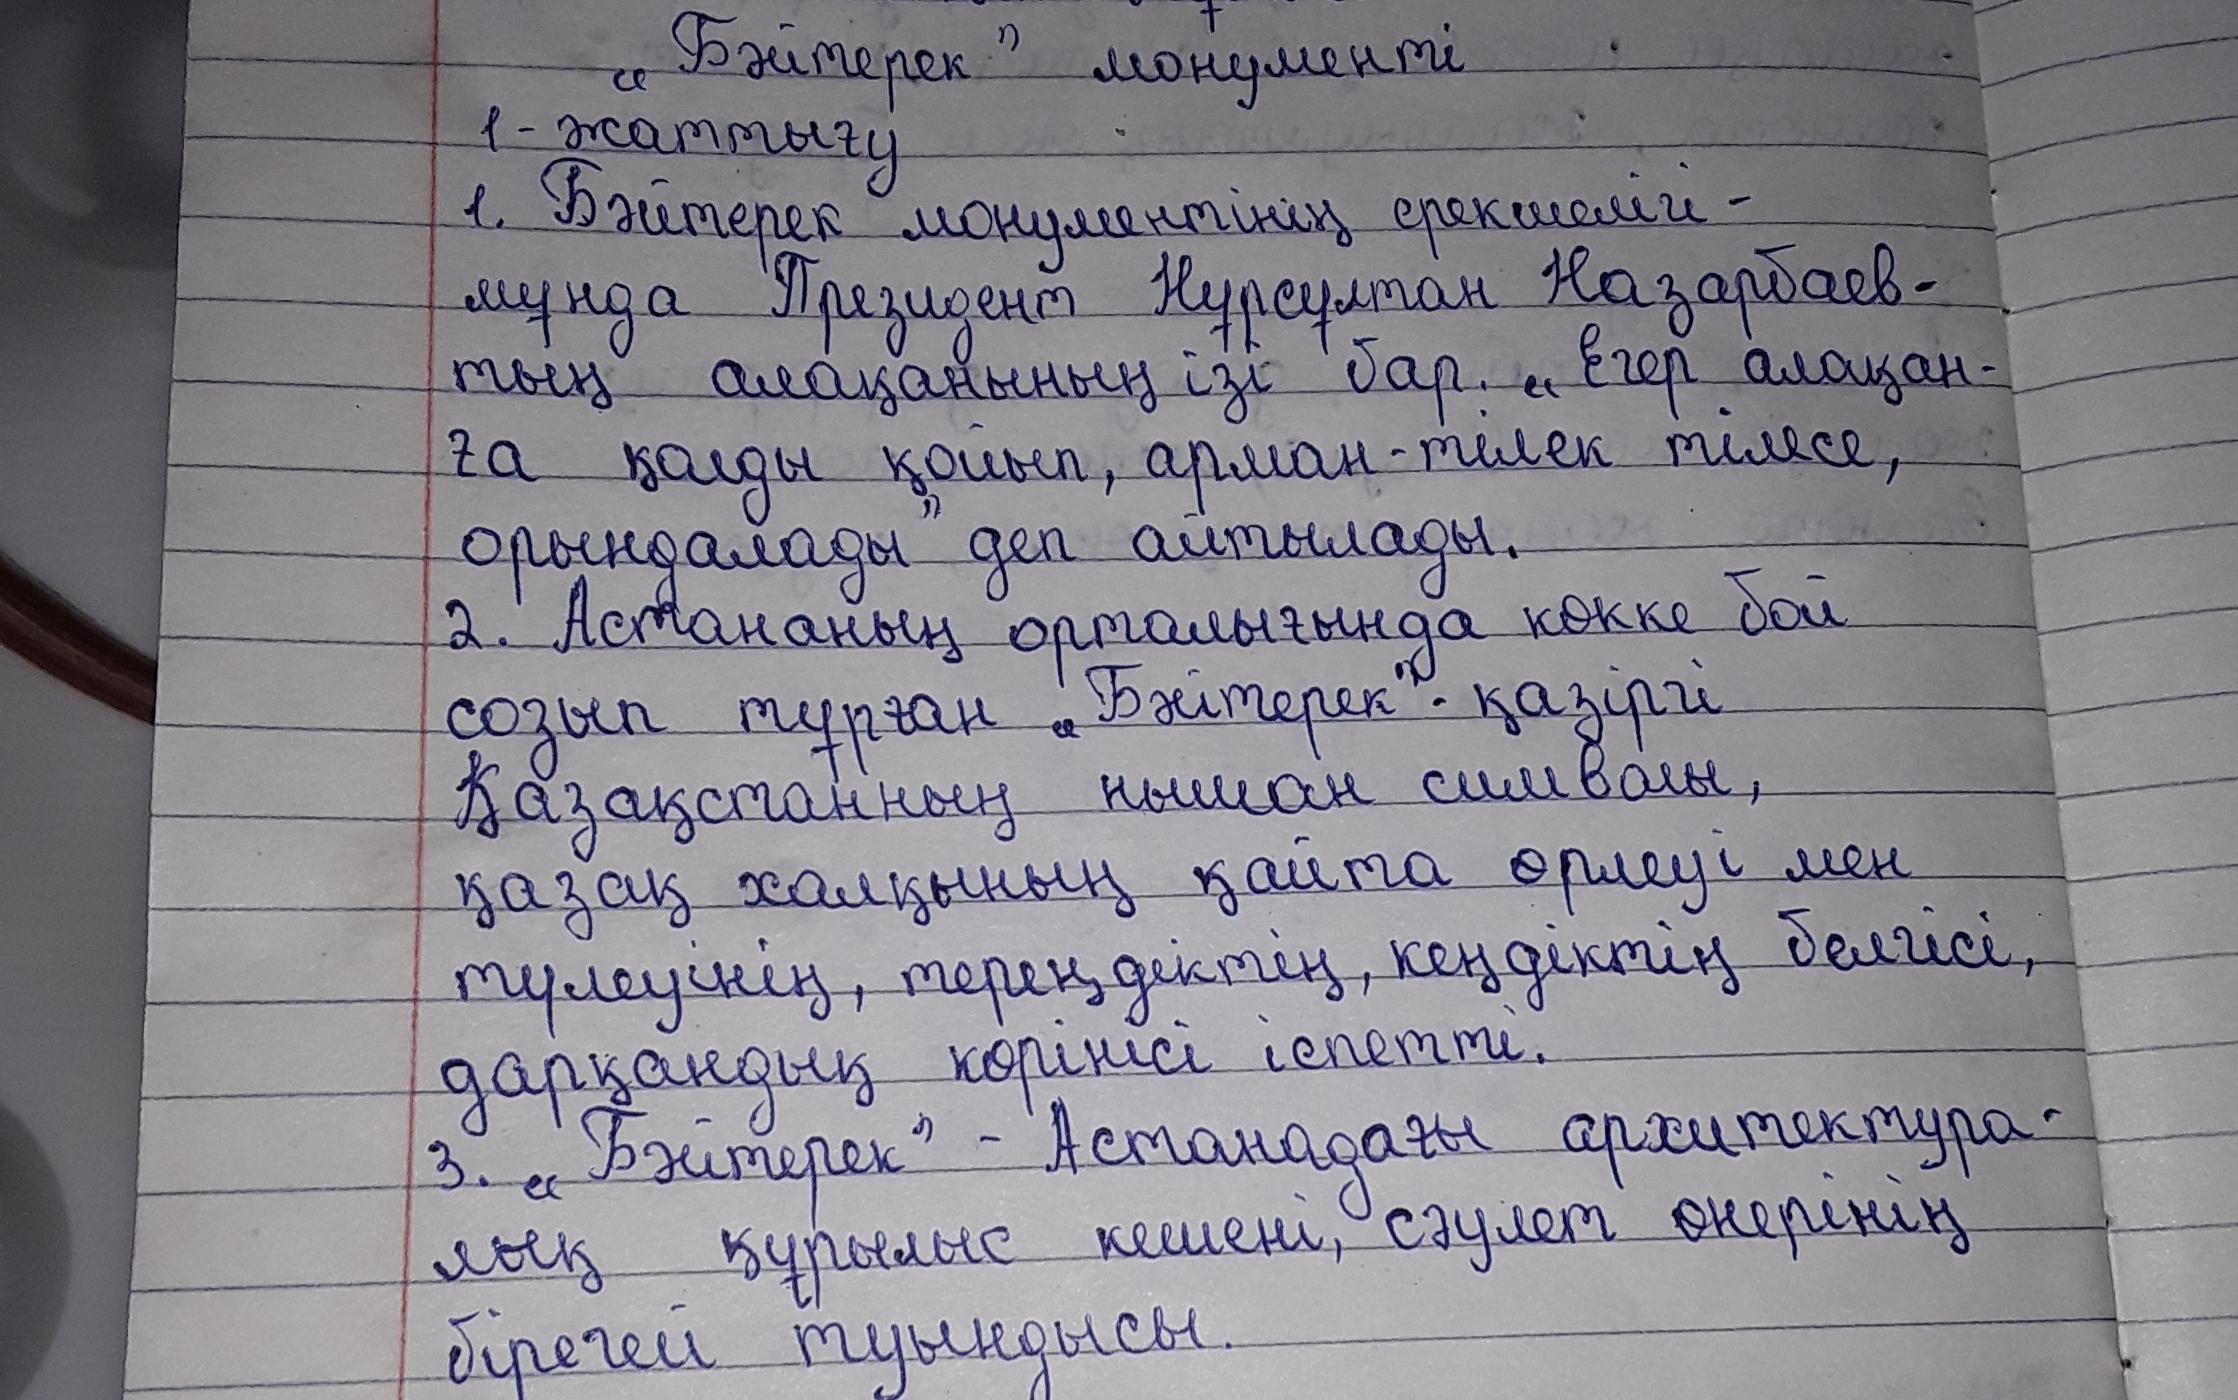 „Бәйтерек" монументі
1-жаттығу
1. Бәйтерек монументінің ерекшелігі -
мұнда Президент Нұрсұлтан Назарбаев-
тың алақанының ізі бар. „Егер алақан-
ға қолды қойып, арман-тілек тілесе,
орындалады" деп айтылады.
2. Астананың орталығында көкке бой
созып тұрған „Бәйтерек" - қазіргі
Қазақстанның нышан символы,
қазақ халқының қайта өрлеуі мен
түлеуінің, тереңдіктің, кеңдіктің белгісі,
дарқандық көрінісі іспетті.
3. „Бәйтерек" - Астанадағы архитектура-
лық құрылыс кешені, сәулет өнерінің
бірегей туындысы.